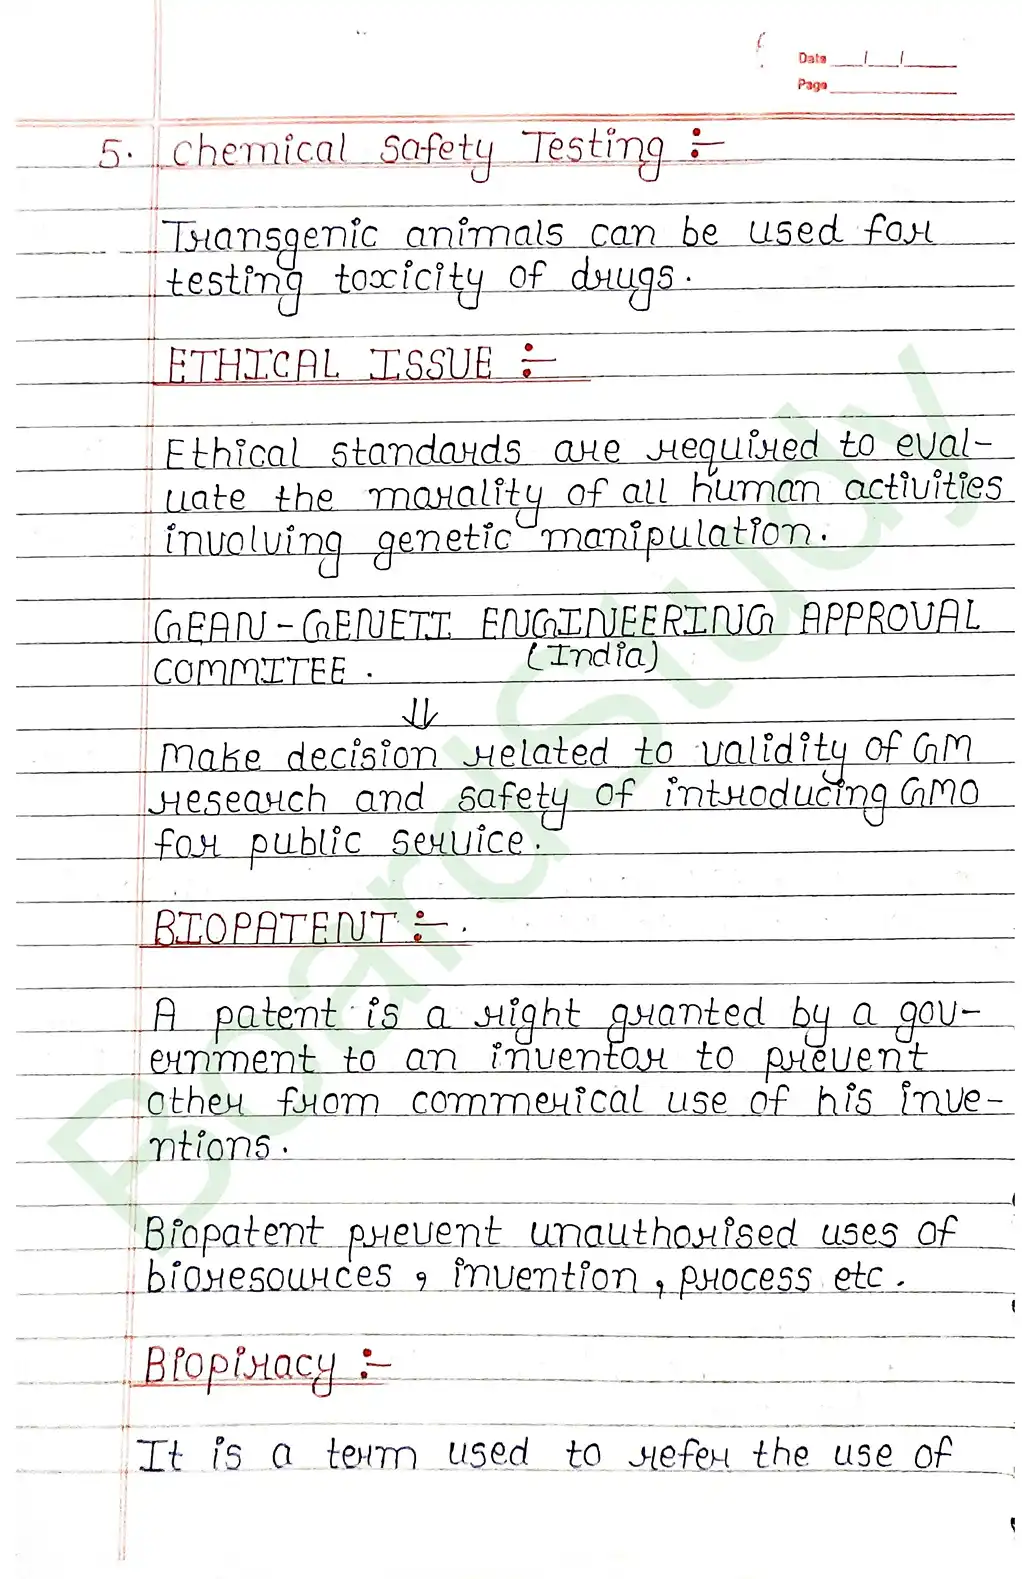 Date __/__/__
Page
5. Chemical Safety Testing :-
Transgenic animals can be used for
testing toxicity of drugs.
ETHICAL ISSUE :-
Ethical standards are required to eval-
uate the morality of all human activities
involving genetic manipulation.
GEAN - GENETI ENGINEERING APPROVAL
COMMITEE. (India)
⇓
Make decision related to validity of GM
research and safety of introducing GMO
for public service.
BIOPATENT :-
A patent is a right granted by a gov-
ernment to an inventor to prevent
other from commerical use of his inve-
ntions.
Biopatent prevent unauthorised uses of
bioresources, invention, process etc.
Biopiracy :-
It is a term used to refer the use of
BoardStudy